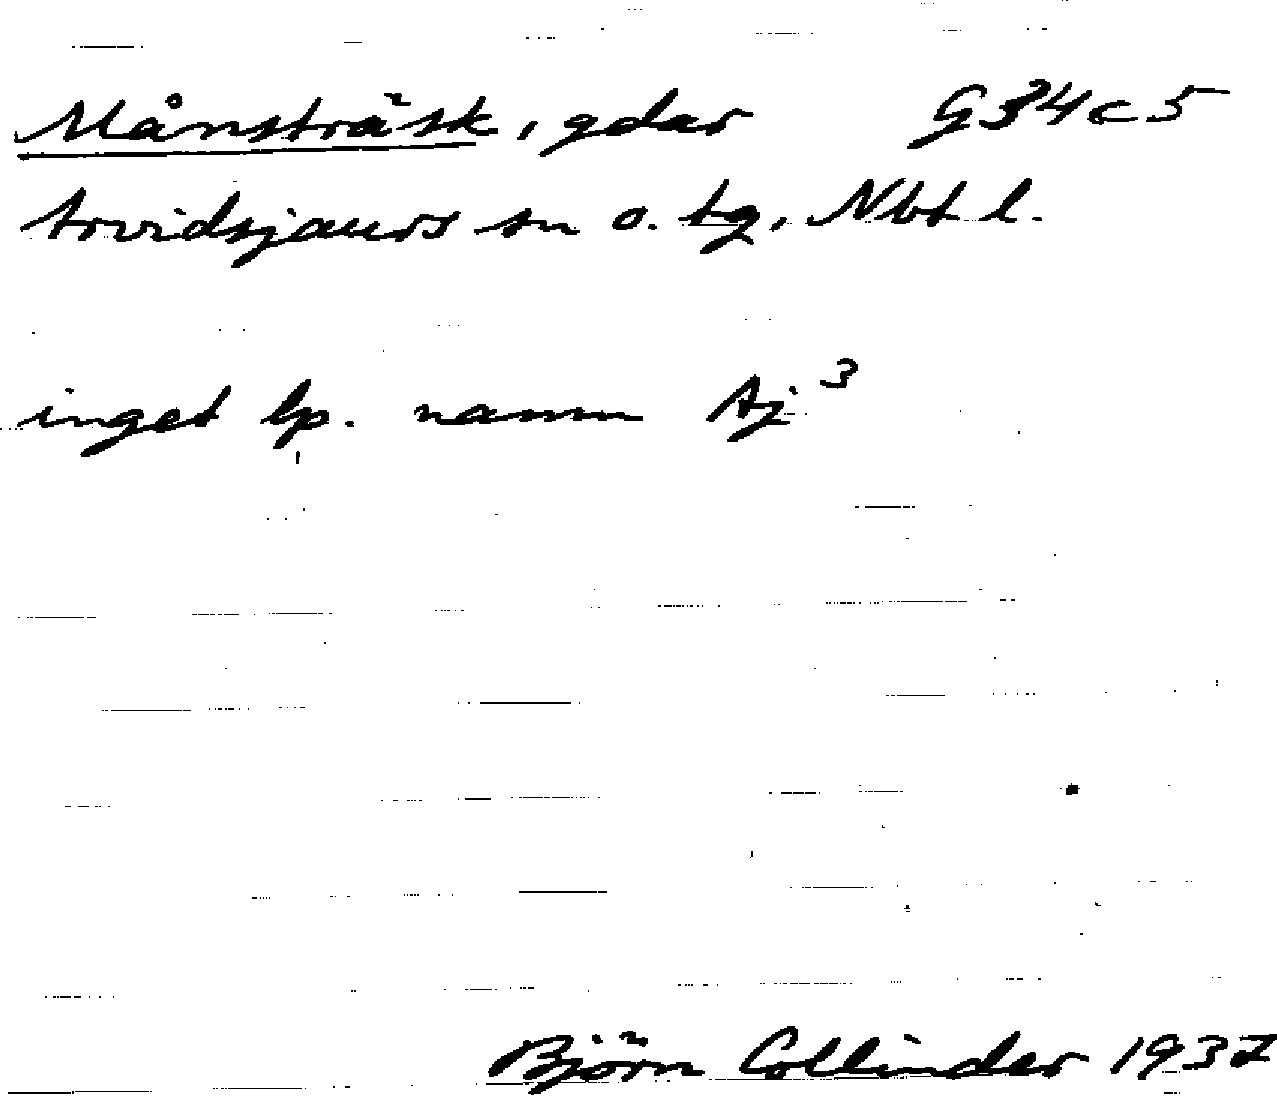 Månsträsk, gdar G34c5
Arvidsjaurs sn o. tg, Nbt l.
inget lp. namn Aj³
Björn Collinder 1937